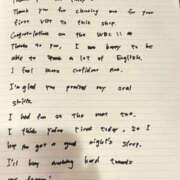 Thank you for choosing me for your
first visit to this shop.
Congratulations on the WBC !!
Thanks to you, I am happy to be
able to speak a lot of English.
I feel more confident now.
I'm glad you praised my oral
skills.
I had fun on the mat too.
I think you're tired today, so I
hope you get a good night's sleep.
I'll keep working hard towards
my dream!